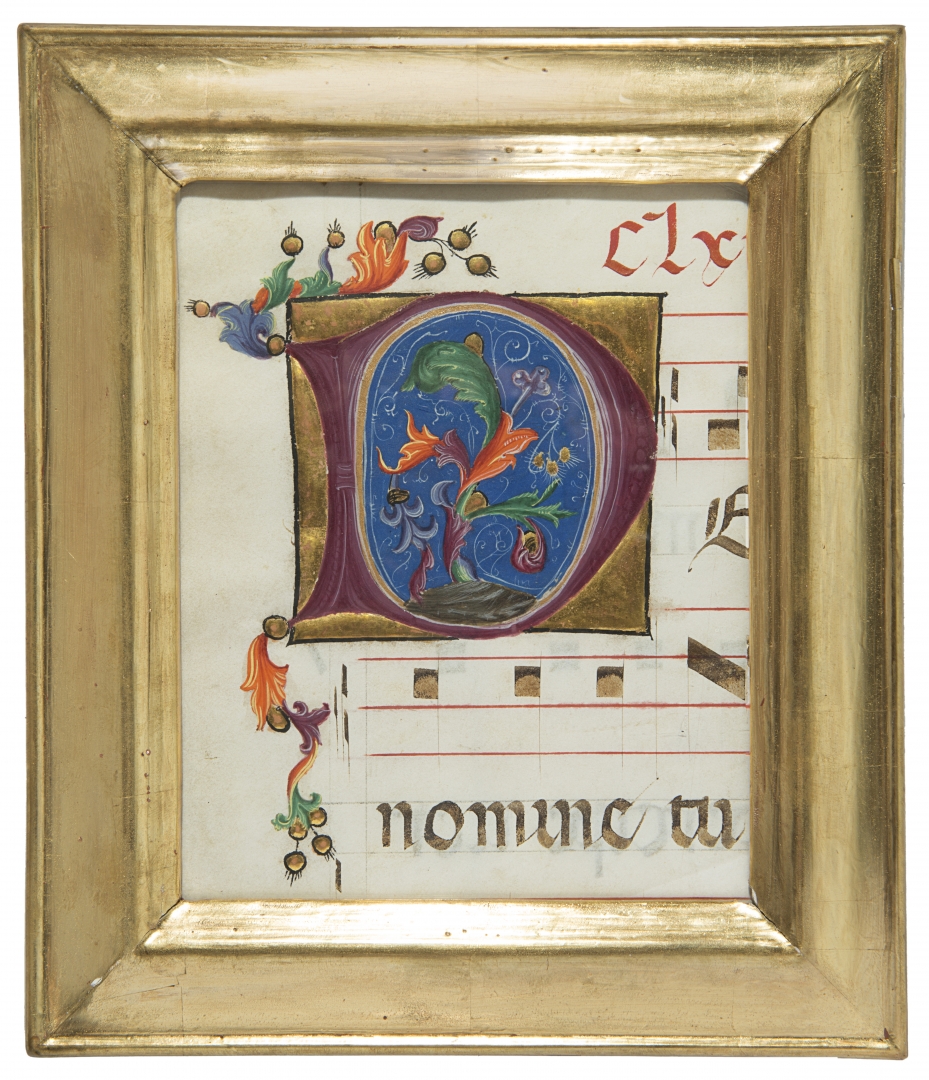 clx
D E
nomine tu